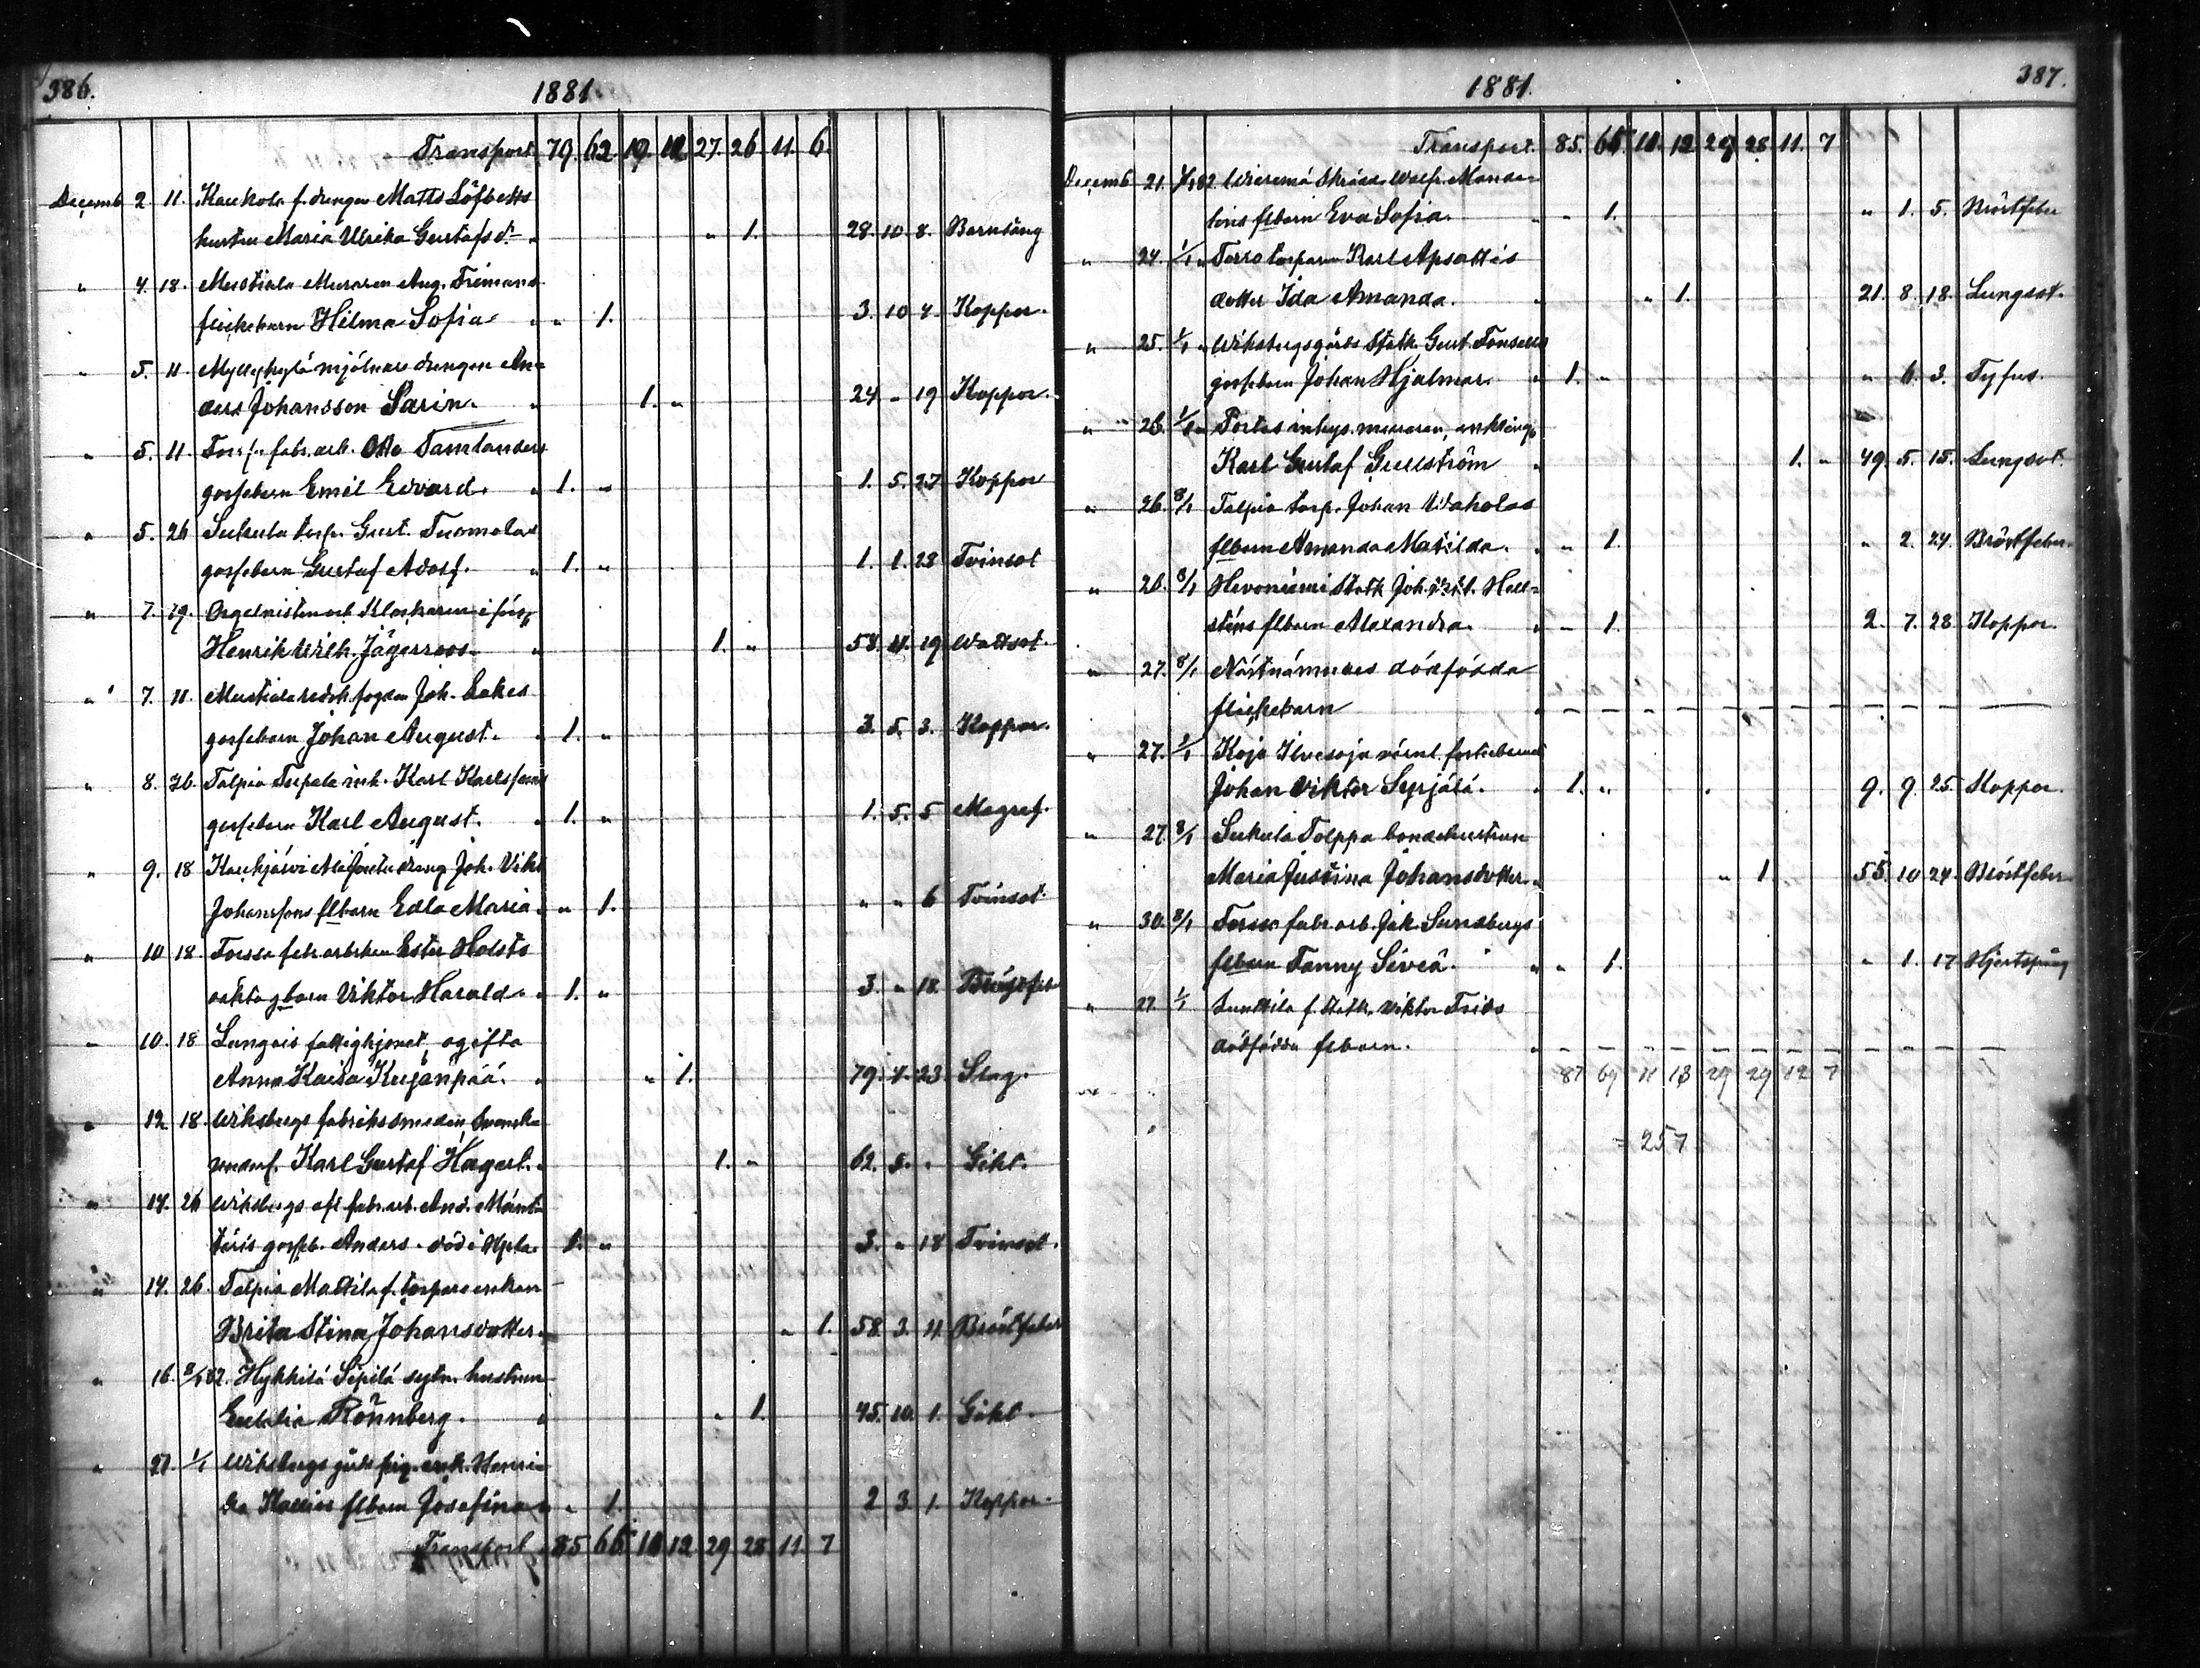 386.
1881
Transport. 79. 62. 19. 12. 27. 26. 11. 6.
Decemb 2. 11. Kaukola f. drengen Matts Löfbetts
hustru Maria Ulrika Gustafsd. " 1. 28. 10. 8. Barnsäng
" 4. 18. Mustiala Muraren Aug. Frimans
flickebarn Hilma Sofia " 1. 3. 10. 4. Koppor.
" 5. 11. mjölnare drengen An-
ders Johansson Sarin. 1. " 24. " 19 Koppor.
" 5. 11. Forssa fabr. arb. Otto Tamlanders
gossebarn Emil Edvard. " 1. " 1. 5. 27 Koppor
" 5. 26 Sukula torp. Gust. Tuomolas
gossebarn Gustaf Adolf. " 1. " 1. 1. 28 Tvinsot
" 7. 19. Orgelnisten och Klockaren i förs.
Henrik Wilh. Jägerroos. " 1. " 58. 4. 19 Wattsot.
" 7. 11. Mustiala redsk. fogden Joh. Lakes
gossebarn Johan August. " 1. " 3. 5. 3. Koppor.
" 8. 26. Talpia Tupala inh. Karl Karlssons
gossebarn Karl August. " 1. " 1. 5. 5 Magref.
" 9. 18 Kaukjärvi drang Joh. Vikt.
Johanssons flbarn Edla Maria. " 1. " " 6 Tvinsot
" 10 18. Forssa fabr. arbrskan Ester Holsts
oäkta gbarn Viktor Harald. " 1. " 3. " 18. Bröstfeb
" 10. 18 Lungois fattighjonet, ogifta
Anna Kaisa Kujanpää. " " 1. 79. 4. 23. Slag.
" 12 18. Wiksbergs fabrikssmeden, Svensk
unders. Karl Gustaf Hagert. 1. " 62. 5. " Gikt.
" 14. 26 Wiksbergs fabr. arb. And. Mänt-
täris gosseb. Anders. död i 1. " 3. " 18 Tvinsot.
" 14. 26. Talpia Mattila f. torpare enkan
Brita Stina Johansdotter. " 1. 58. 3. 11 Bröstfeber
" 16. 8/1 82. Hykkilä Sipilä sytn. hustrun
Eulalia Rönnberg. " " 1. 45. 10. 1. Gikt.
" 21. 1/1 Wiksbergs enk. Henri-
ka flbarn Josefina " 1. 2 3. 1. Koppor.
Transport 85 66 10 12 29 28 11 7
387.
1881.
Transport. 85. 66. 10. 12. 29 28. 11. 7
Decemb. 21. 1/1 82 Wieremä Skrädd. Manda-
lins flbarn Eva Sofia. " 1. " 1. 5. Bröstfeber
" 24. 1/1 " Torro torparen Karl Apsattis
dotter Ida Amanda. " " 1. 21. 8. 18. Lungsot.
" 25. 1/1 " Wiksbergsgårds Statk. Gust. Fonsells
gossebarn Johan Hjalmar. " 1. " " 6. 3. Tyfus.
" 26. 1/1 " Portas inhys. muraren, enkling
Karl Gustaf Gullström " 1. " 49. 5. 15. Lungsot.
" 26. 8/1 Talpia torp. Johan Uvaholas
flbarn Amanda Matilda. " " 1. " 2. 24. Bröstfeber.
" 26. 8/1 Hevoniemi Statk. Joh. Hell-
sténs flbarn Alexandra. " " 1. 2. 7. 28 Koppor.
" 27. 8/1 dödfödda
flickebarn " – – – – – – – – – –
" 27. 1/1 Kojo Ilvesoja
Johan Viktor Syrjälä. " 1. " 9. 9. 25. Koppor.
" 27. 8/1 Sukula Tolppa bondehustrun
Maria Justina Johansdotter. " " 1. 55. 10 24. Bröstfeber.
" 30. 8/1 Forssa fabr. arb. Jak. Sundbergs
flbarn Fanny Siveä. " " 1. " 1. 17 Hjertspång
" 27. 1/1 f. Statk. Viktor Frids
dödfödda flbarn. " – – – – – – – – – –
87 69 11 13 29 29 12 7
= 257